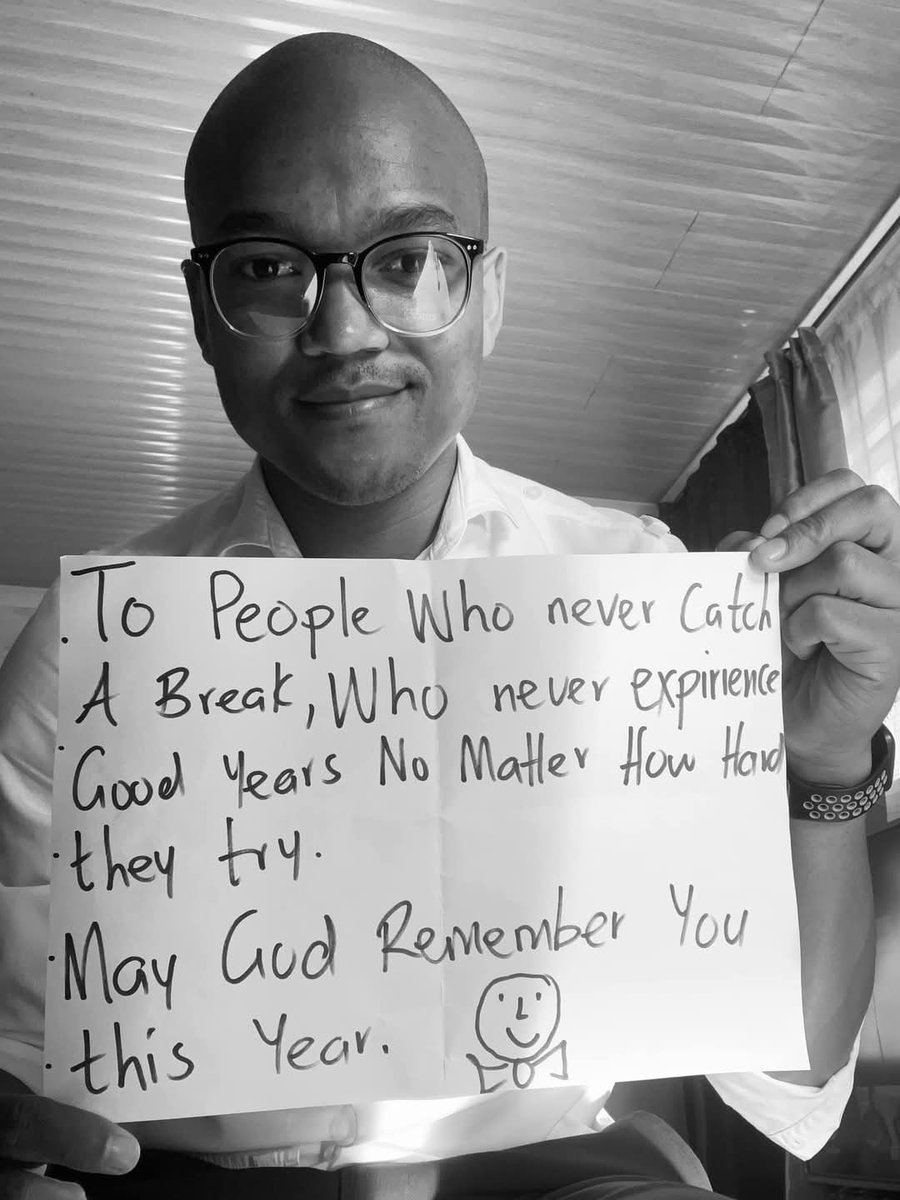 .To People Who never Catch
A Break, Who never expirience
Good Years No Matter How Hard
they try.
May God Remember You
this Year.